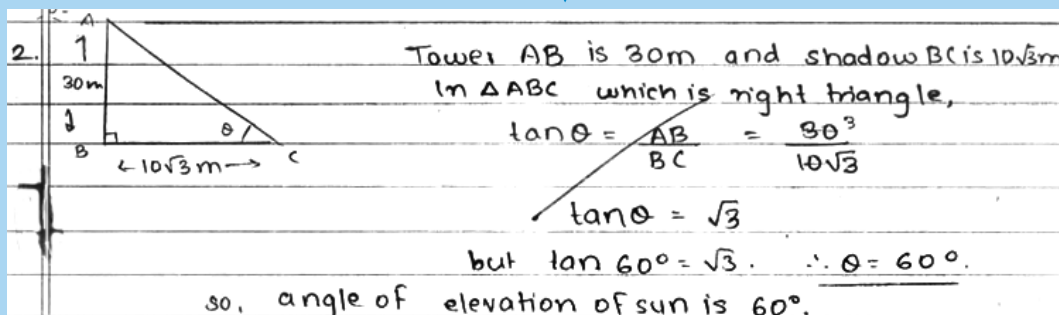 2.
A
30m
B
θ
C
←10√3m→
Tower AB is 30m and shadow BC is 10√3m
In △ABC which is right triangle,
tanθ = AB/BC = 30³/10√3
tanθ = √3
but tan 60° = √3. ∴ θ = 60°.
so, angle of elevation of sun is 60°.